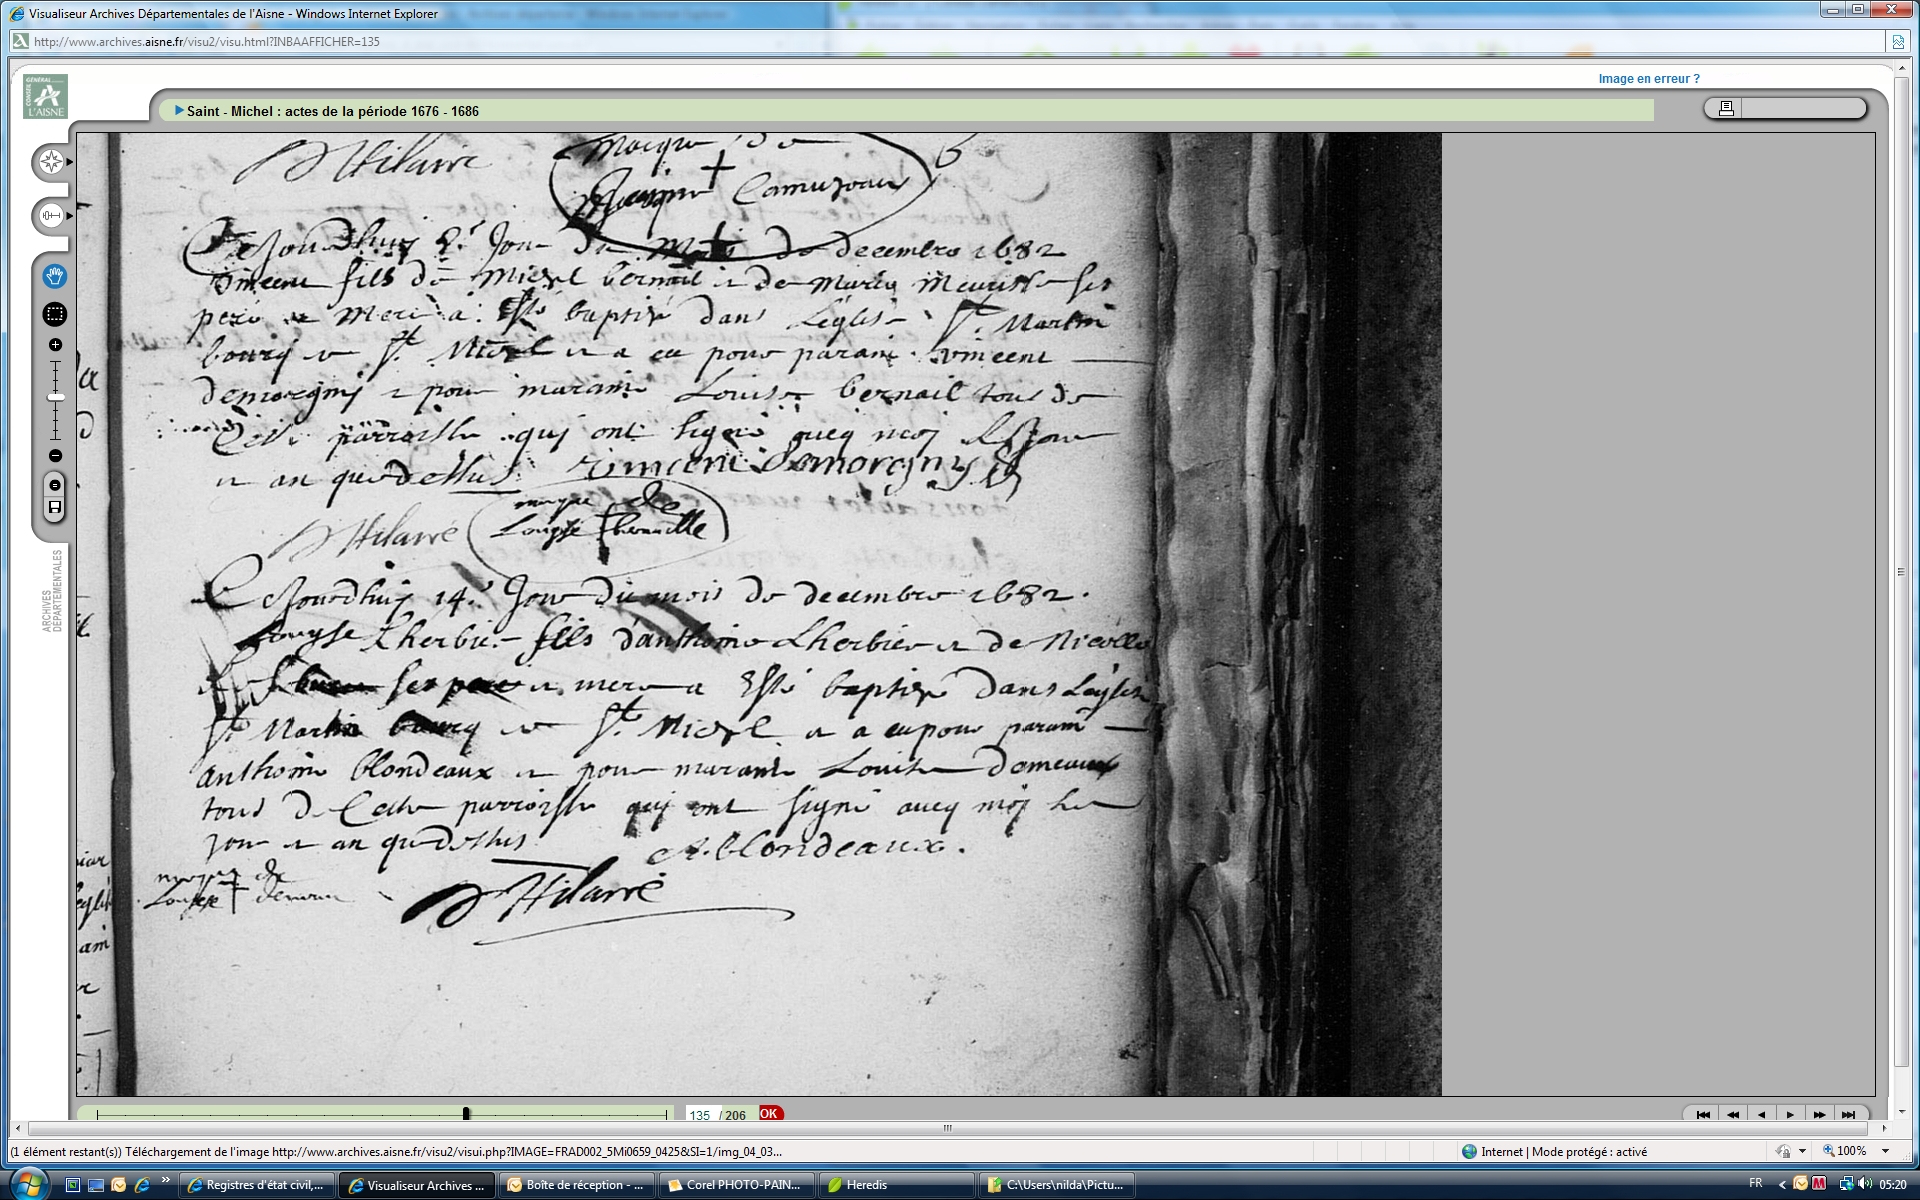 Visualiseur Archives Départementales de l'Aisne - Windows Internet Explorer
http://www.archives.aisne.fr/visu2/visu.html?INBAAFFICHER=135
Image en erreur ?
CONSEIL GÉNÉRAL
L'AISNE
Saint - Michel : actes de la période 1676 - 1686
ARCHIVES DEPARTEMENTALES
D Hilarré
marque de
Camuzeaux
Cejourdhuy 8.e Jour du Mois de decembre 1682
Vincent fils de Michel bernail et de Marie Meurisse ses
pere et mere a Esté baptisé dans L'eglise St. Martin
bourg de St. Michel et a eu pour parain Vincent
demorgni et pour maraine Louise bernail tous de
Cette parroisse qui ont signé avecq moi
et an que dessus Vincent Demorgny
D Hilarré
marque de
Louyse bernaille
Cejourdhuy 14.e Jour du mois de decembre 1682.
Louyse Lherbier fils d'anthoine Lherbier et de Nicolle
ses pere et mere a Esté baptisé dans L'eglise
St. Martin bourg de St. Michel et a eu pour parain
anthoine blondeaux et pour maraine Louise
tous de Cette parroisse qui ont signé avecq moy les
jour et an que dessus
A. blondeaux.
marque de
Louyse
D Hilarré
135 / 206 OK
(1 élément restant(s)) Téléchargement de l'image http://www.archives.aisne.fr/visu2/visui.php?IMAGE=FRAD002_5Mi0659_0425&SI=1/img_04_03...
Internet | Mode protégé : activé
100%
Registres d'état civil,...
Visualiseur Archives ...
Boîte de réception - ...
Corel PHOTO-PAIN...
Heredis
C:\Users\nilda\Pictu...
FR
05:20